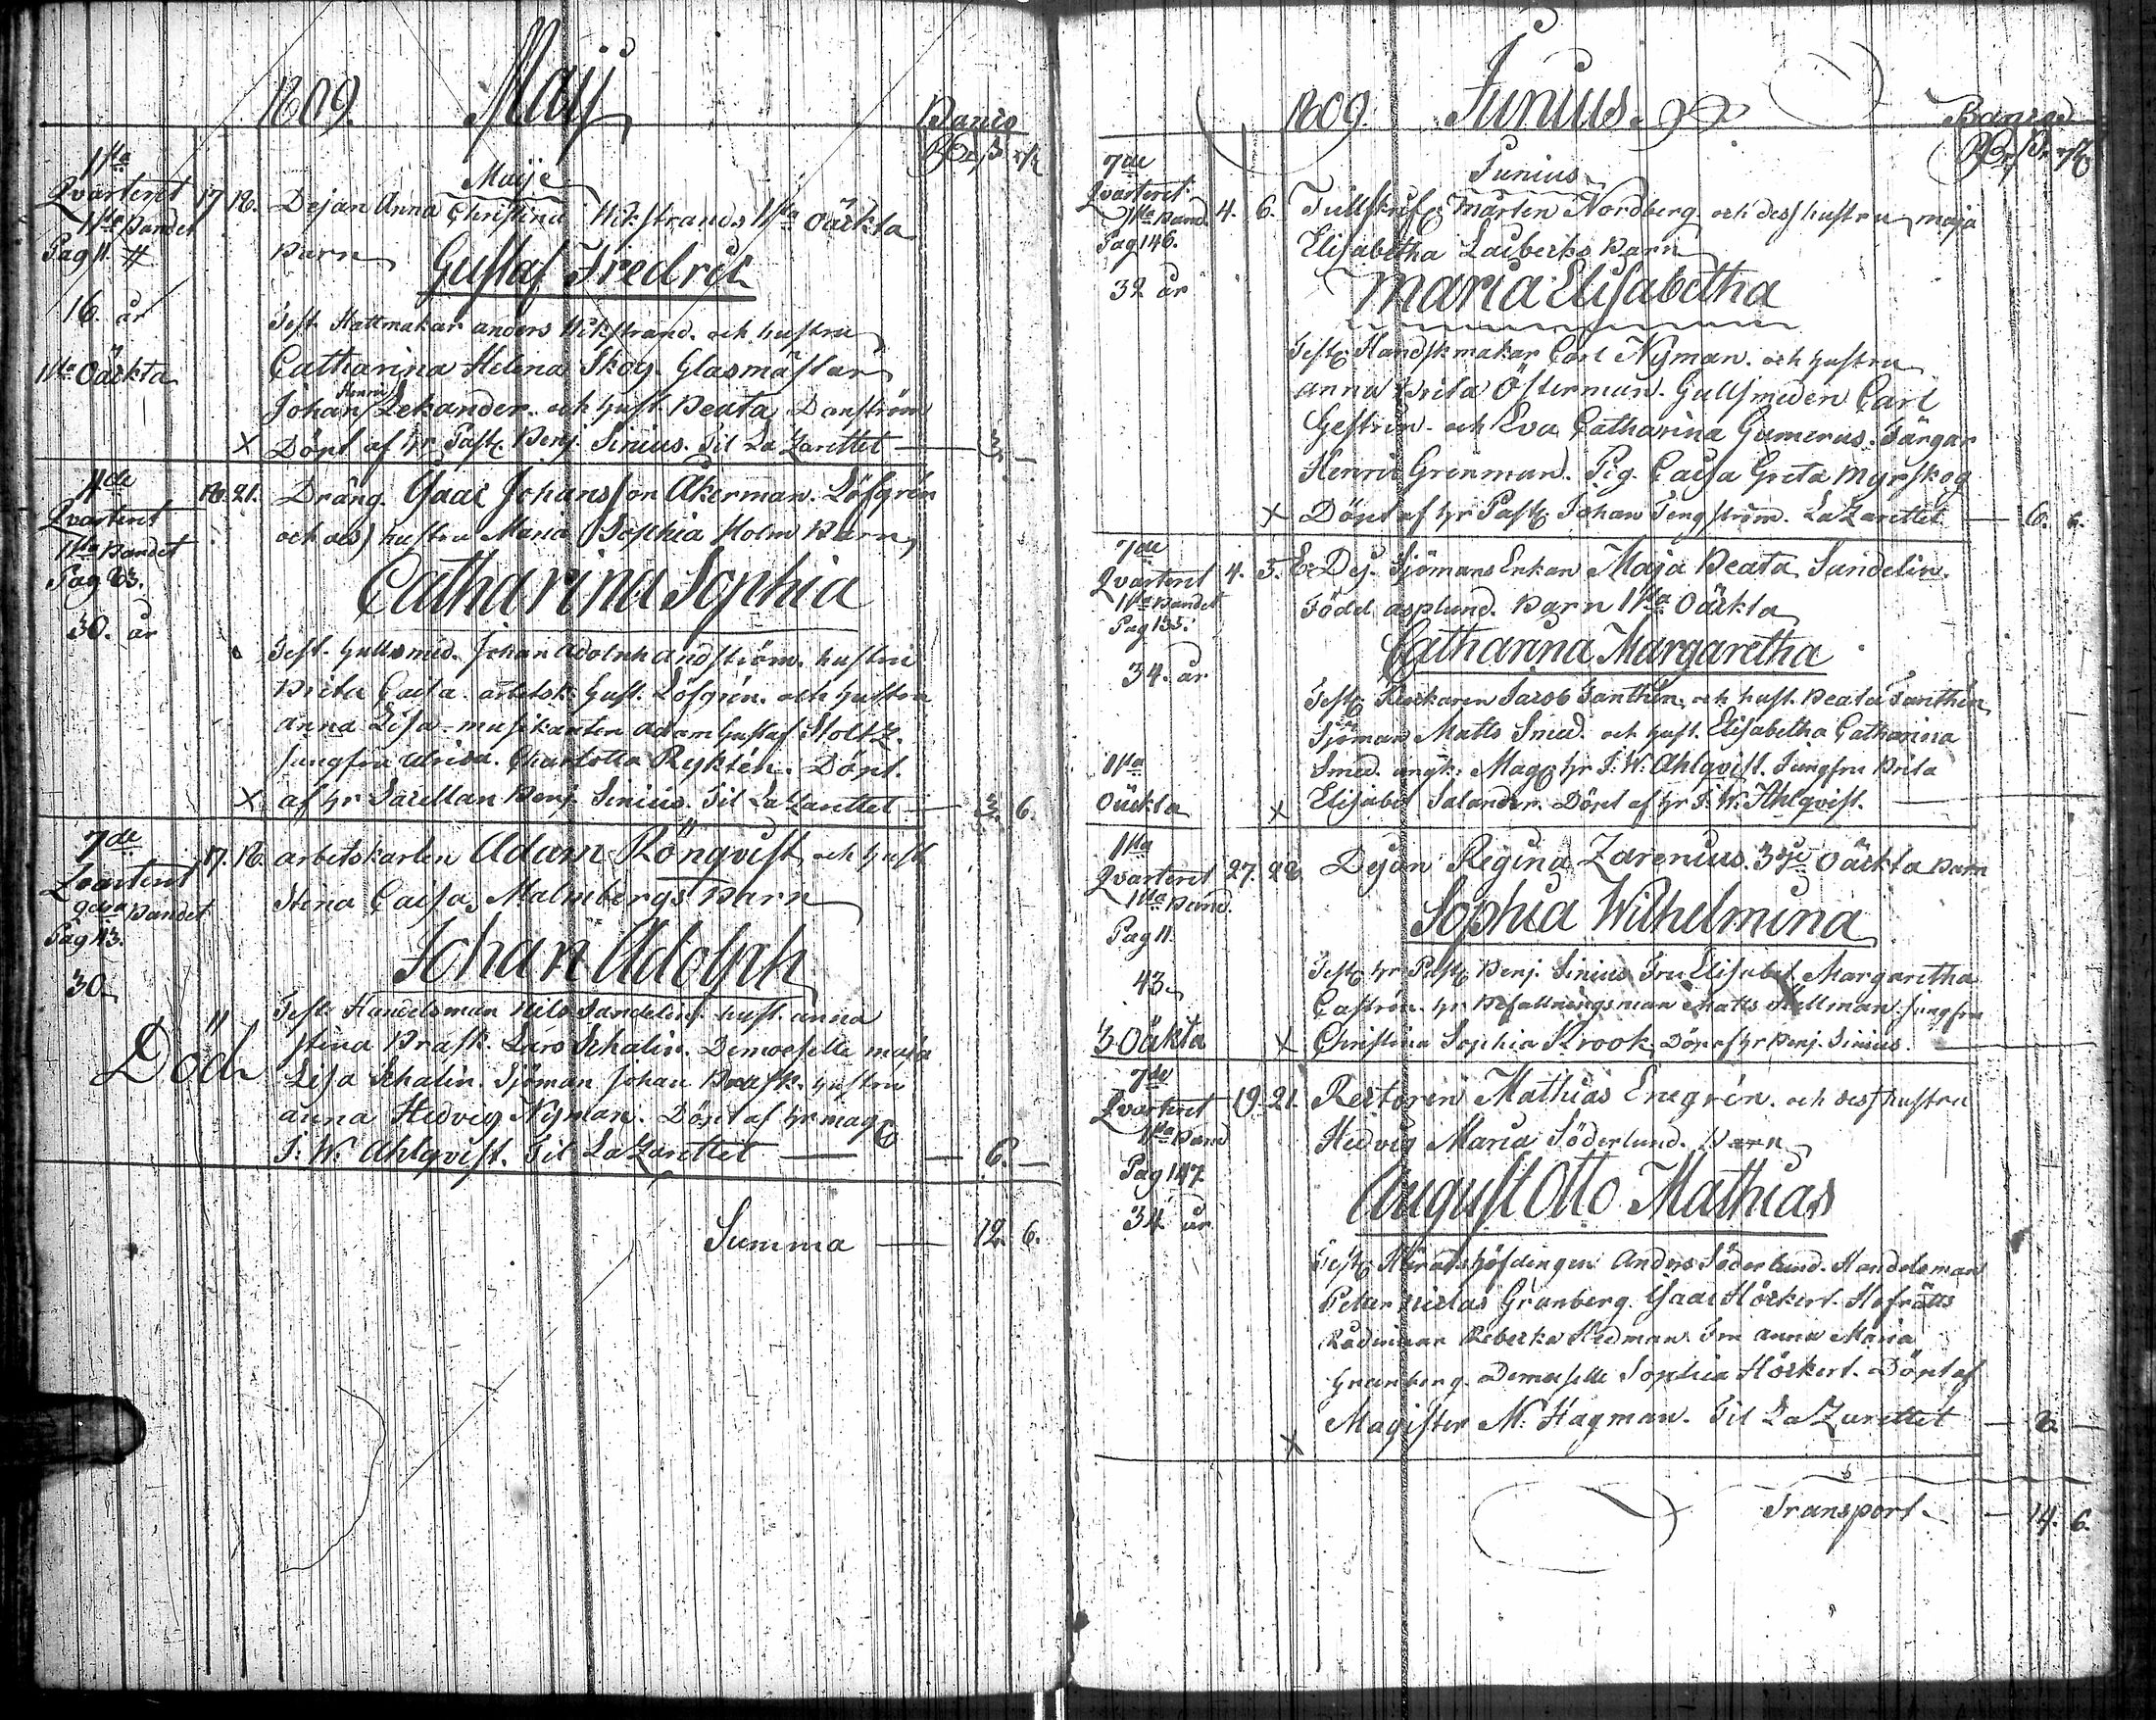 1809. Maij
Banco
Rdr ß r/s
Maije
1sta
Qvarteret 17 18. Dejan Anna Christina Wikstrands 1sta Oäckta
1sta Bandet
Pag 11. #
Barn Gustaf Fredric
16. år
Test. Hattmakar anders Wikstrand. och hustru
1sta Oäckta
Catharina Helena Skog. Glasmästar
Johan Henric Zekander. och hust. Beata Danström
X Döpt af hr Past. Benj. Sinius. Til La Zarettet — 3. —
4de
Qvarteret 18. 21. Dräng. Isaac Johansson Åkerman. Löfgrén
1sta Bandet
och des hustru Maria Sophia Holm Barn
Pag 83.
Catharina Sophia
30. år
Test. Gullsmed. Johan Adolph Lindström. hustru
Brita Caisa. arbetsk: Gust. Löfgrén. och hustru
Anna Lisa. musikanten Adam Gustaf Stoltz.
Jungfru Ulrica. Charlotta Ryktén. Döpt.
X af hr Sacellan Benj. Sinius. Til La Zarettet — 3. 6.
7de
Qvarteret 17. 18. arbetskarlen Adam Rönqvist och hust
2dra Bandet
Stina Caisa Malmbergs Barn
Pag 43.
Johan Adolph
30
Test. Handelsman Nils Sandelin. hust. anna
Död
stina Brask. Lars Schalin. Demoeselle maja
Lisa Schalin. Sjöman Johan Brask. hustru
anna Hedvig Nyman. Döpt af hr mag
J. W. Ahlqvist. Til La Zarettet — 6. —
Summa — 12. 6.
1809. Junius.
Banco
Rdr ß r/s
Junius
7de
Qvarteret 4. 6. Tullskrif: Mårten Nordberg och dess hustru maja
1sta Band.
Pag 146.
Elisabetha Lacbecks Barn
32 år
Maria Elisabetha
Test: Handskmakar Carl Nyman. och hustru
anna Brita Österman. Gullsmeden Carl
Gestrin. och Eva Catharina Gumerus. Färgar
Henric Grönman. Pig. Caisa Greta Myrskog
X Döpt af hr Past: Johan Tengström. La Zarettet — 6. 6.
7de
Qvarteret 4. 5. E: Dej. Sjömans Enkan Maja Beata Sandelin.
1sta Bandet
Född asplund. Barn 1sta Oäckta
Pag 135.
Catharina Margaretha
34. år
Test: Klockaren Jacob Fanthén. och hust. Beata Fanthén
Sjöman Matts Smed. och hust. Elisabetha Catharina
1sta
Smed. ungk: Mag: hr J. W. Ahlqvist. Jungfru Brita
Oäckta
X Elisabet Salander. Döpt af hr J. W. Ahlqvist. —
1sta
Qvarteret 27. 28. Dejan Regina Zarenius. 3dje Oäckta Barn
1sta Band.
Sophia Wilhelmina
Pag 11.
43
Test: hr Past: Benj. Sinius. Fru Elisabet Margaretha
Castrén. hr Befallningsman Matts Hellman. jungfru
3 Oäkta
X Christina Sophia Krook. Döp: af hr Benj. Sinius. —
7de
Qvarteret 19. 21. Rectorin Mathias Enegrén. och dess hustru
1sta Band
Hedvig Maria Söderlund. Barn
Pag 147
August Otto Mathias
34 år
Test: Häradshöfdingen Anders Söderlund. Handelsman
Petter Niclas Granberg. Isaac Höckert. Hofrätts
Rådinnan Rebecka Hedman. Fru Anna Maria
Granberg. Demoiselle Sophia Höckert. Döpt af
Magister N. Hagman. Til La Zarettet — 8. —
X
Transport — 14. 6.